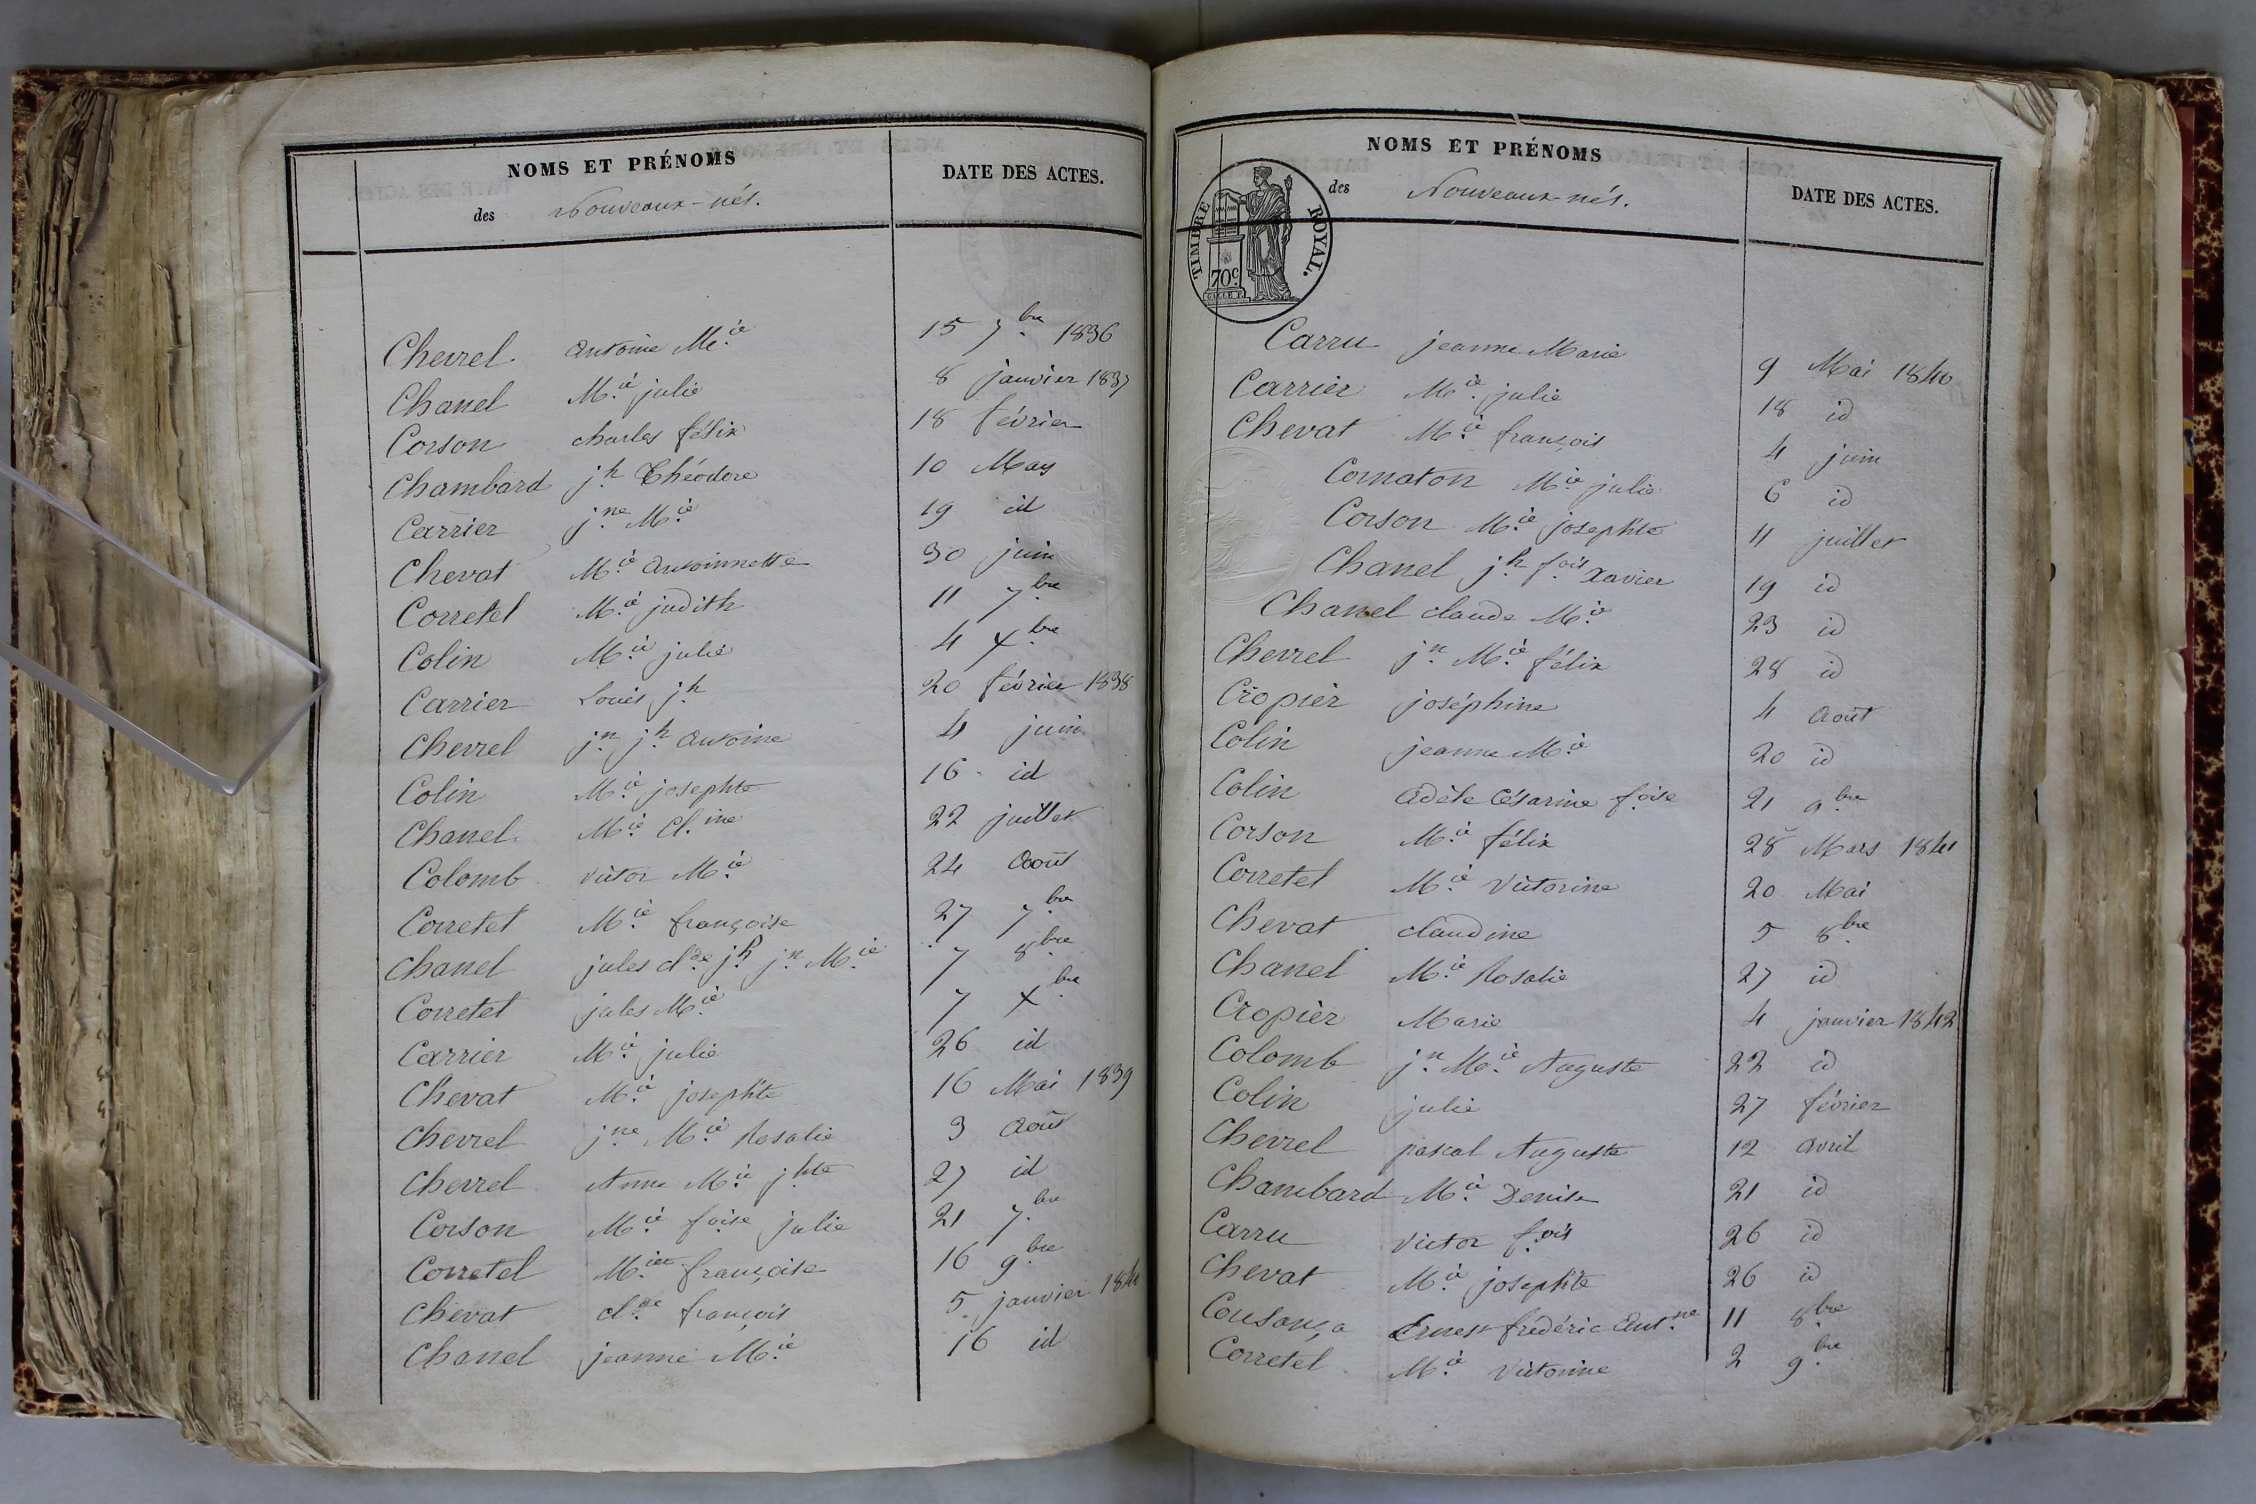 NOMS ET PRÉNOMS
des Nouveaux-nés.
DATE DES ACTES.
Chevrel antoine M.ie 15 7.bre 1836
Chanel M.ie julie 8 janvier 1837
Corson charles félix 18 février
Chambard j.h Théodore 10 Mars
Carrier j.ne M.ie 19 id
Chevat M.ie antoinnette 30 juin
Corretel M.ie judith 11 7.bre
Colin M.ie julie 4 X.bre
Carrier Louis j.h 20 février 1838
Chevrel j.n j.h antoine 4 juin
Colin M.ie josephte 16 id
Chanel M.ie Cl.ine 22 juillet
Colomb victor M.ie 24 août
Corretel M.ie françoise 27 7.bre
Chanel jules cl.de j.h j.n M.ie 7 8.bre
Corretel jules M.ie 7 X.bre
Carrier M.ie julie 26 id
Chevat M.ie josephte 16 Mai 1839
Chevrel j.ne M.ie Rosalie 3 août
Chevrel Anne M.ie j.hte 27 id
Corson M.ie f.oise julie 21 7.bre
Corretel M.ie françoise 16 9.bre
Chevat cl.de françois 5 janvier 1840
Chanel jeanne M.ie 16 id
NOMS ET PRÉNOMS
des Nouveaux-nés.
DATE DES ACTES.
TIMBRE ROYAL.
70c
Carru jeanne Marie 9 Mai 1840
Carrier M.ie julie 18 id
Chevat M.ie françois 4 juin
Cornaton M.ie julie 6 id
Corson M.ie josephte 11 juillet
Chanel j.h f.ois Xavier 19 id
Chanel claude M.ie 23 id
Chevrel j.n M.ie félix 28 id
Cropier joséphine 4 août
Colin jeanne M.ie 20 id
Colin adèle Césarine f.oise 21 9.bre
Corson M.ie félix 28 Mars 1841
Corretel M.ie Victorine 20 Mai
Chevat claudine 5 8.bre
Chanel M.ie Rosalie 27 id
Cropier Marie 4 janvier 1842
Colomb j.n M.ie Auguste 22 id
Colin julie 27 février
Chevrel pascal Auguste 12 avril
Chambard M.ie Denise 21 id
Carru victor f.ois 26 id
Chevat M.ie josephte 26 id
Cousança Ernest frédéric Ant.ne 11 8.bre
Corretel M.ie Victorine 2 9.bre